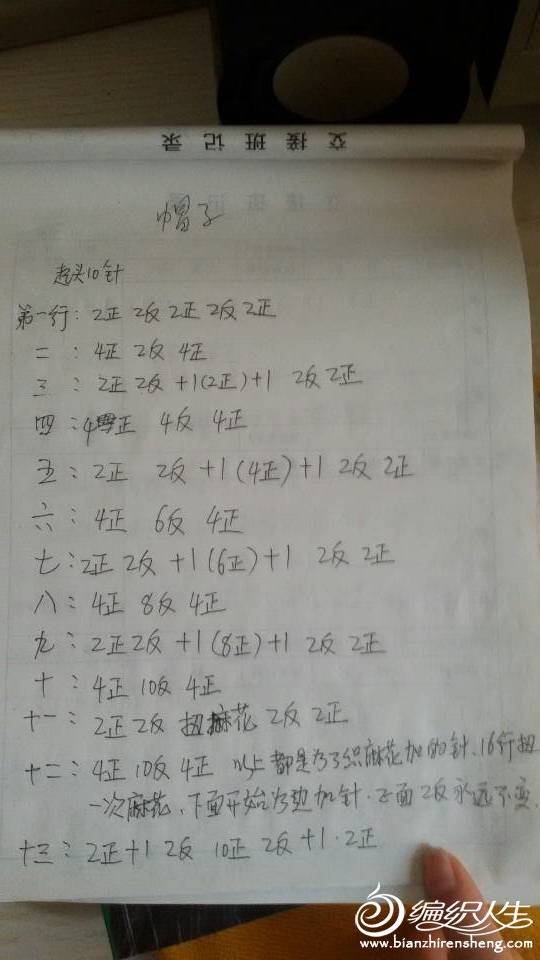 交接班记录
帽子
起头10针
第一行：2正 2反 2正 2反 2正
二：4正 2反 4正
三：2正 2反 +1(2正)+1 2反 2正
四：4正 4反 4正
五：2正 2反 +1(4正)+1 2反 2正
六：4正 6反 4正
七：2正 2反 +1(6正)+1 2反 2正
八：4正 8反 4正
九：2正 2反 +1(8正)+1 2反 2正
十：4正 10反 4正
十一：2正 2反 扭麻花 2反 2正
十二：4正 10反 4正 以上都是为了织麻花加的针、16行扭
一次麻花、下面开始为边加针．正面2反永远不变．
十三：2正+1 2反 10正 2反+1．2正
编织人生
www.bianzhirensheng.com